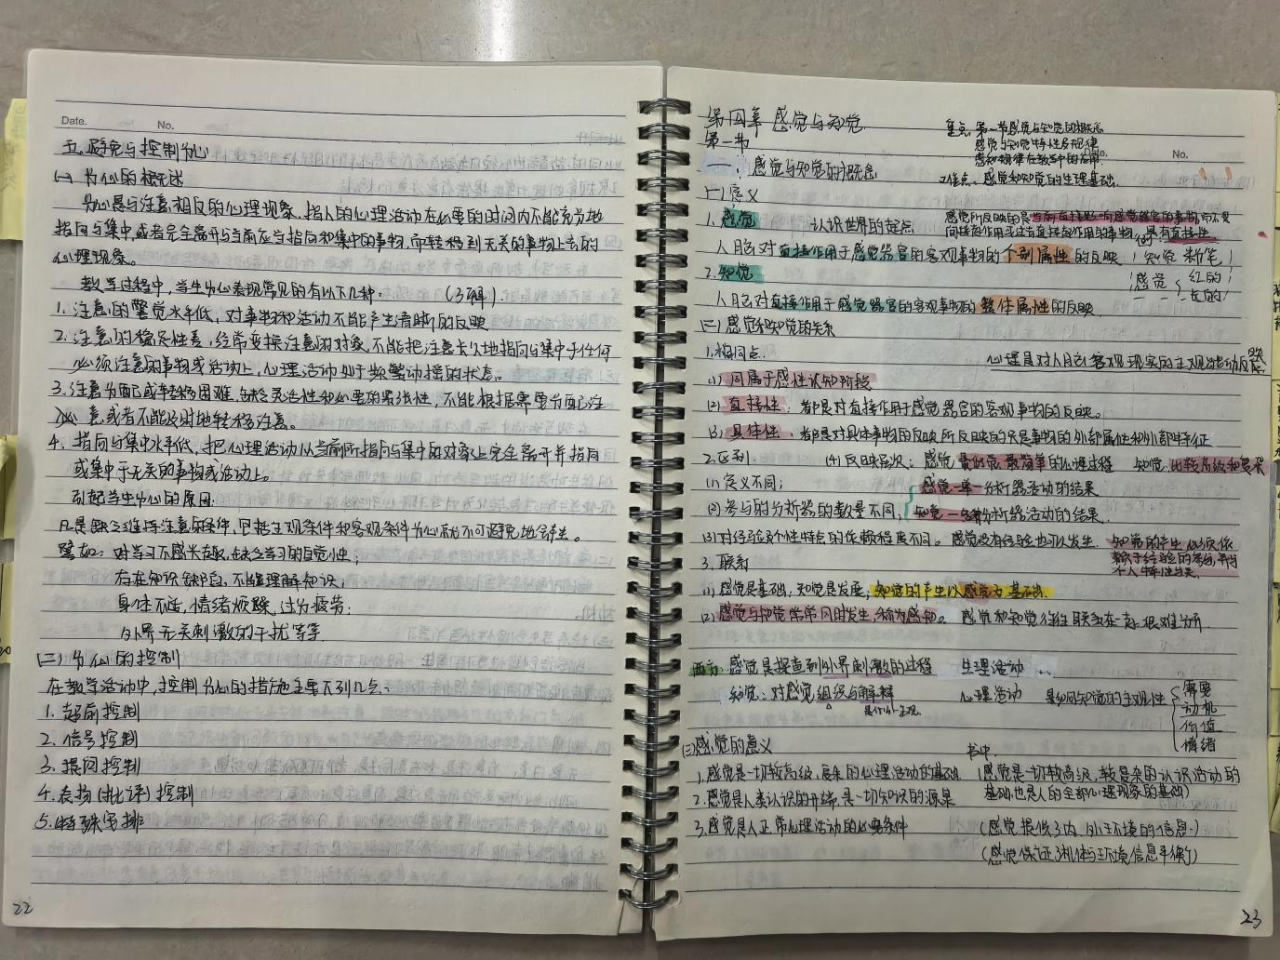 Date.
No.
五、避免与控制分心
(一) 分心的概述
分心是与注意相反的心理现象,指人的心理活动在必要的时间内不能充分地
指向与集中,或者完全离开当前应当指向和集中的事物,而转移到无关的事物上去的
心理现象。
教学过程中,学生分心表现常见的有以下几种. (了解).
1. 注意的警觉水平低,对事物和活动不能产生清晰的反映
2. 注意的稳定性差,经常变换注意的对象,不能把注意长久地指向与集中于任何
必须注意的事物或活动上,心理活动处于频繁动摇的状态。
3. 注意分配或转移困难,缺乏灵活性和必要的紧张性,不能根据需要分配注
意或者不能及时地转移注意。
4. 指向与集中水平低,把心理活动从当前所指向与集中的对象上完全离开并指向
或集中于无关的事物或活动上。
引起学生分心的原因
凡是缺乏维持注意的条件,包括主观条件和客观条件分心就不可避免地会产生。
譬如: 对学习不感兴趣,缺乏学习的自觉性;
存在知识缺陷,不能理解知识;
身体不适,情绪烦躁,过分疲劳;
外界无关刺激的干扰等等
(二) 分心的控制
在教学活动中,控制分心的措施主要下列几点:
1. 超前控制
2. 信号控制
3. 提问控制
4. 表扬(批评)控制
5. 特殊安排
22
第四章 感觉与知觉
第一节
重点:第一节感觉与知觉的概念
感觉与知觉特性及规律
感知规律在教学中的应用.
No.
一、感觉与知觉的概念
难点:感觉和知觉的生理基础.
(一) 意义
1. 感觉 认识世界的起点
感觉所反映的是当前直接影响感觉器官的事物,而不是
间接作用或过去直接作用的事物。具有直接性
人脑对直接作用于感觉器官的客观事物的个别属性的反映
知觉 粉笔
2. 知觉
感觉 { 红的
长的
人脑对直接作用于感觉器官的客观事物的整体属性的反映
(二) 感觉和知觉的关系
1. 相同点.
心理是对人脑客观现实的主观能动反映
(1) 同属于感性认知阶段
(2) 直接性: 都是对直接作用于感觉器官的客观事物的反映。
(3) 具体性: 都是对具体事物的反映所反映的只是事物的外部属性和外部特征
2. 区别 (4) 反映层次: 感觉 最低级最简单的心理过程 知觉:比较高级和复杂
(1) 定义不同;
感觉-单一分析器活动的结果
(2) 参与的分析器的数量不同;
知觉-多种分析器活动的结果.
(3) 对经验及个性特点的依赖程度不同。感觉没有经验也可以发生. 知觉的产生必须依
赖于经验的参与,并与
个人特性有关.
3. 联系
(1) 感觉是基础,知觉是发展,知觉的产生以感觉为基础.
(2) 感觉与知觉常常同时发生,称为感知。 感觉和知觉往往联系在一起,很难分开
西方: 感觉是探查到外界刺激的过程 生理活动
知觉: 对感觉组织与解释 心理活动 影响知觉的主观性 { 需要
动机
价值
情绪
(三) 感觉的意义
书中.
1. 感觉是一切较高级、复杂的心理活动的基础 (感觉是一切较高级,较复杂的认识活动的
基础,也是人的全部心理现象的基础)
2. 感觉是人类认识的开端,是一切知识的源泉
3. 感觉是人正常心理活动的必要条件 (感觉提供了内、外环境的信息.)
(感觉保证了机体与环境信息平衡)
23